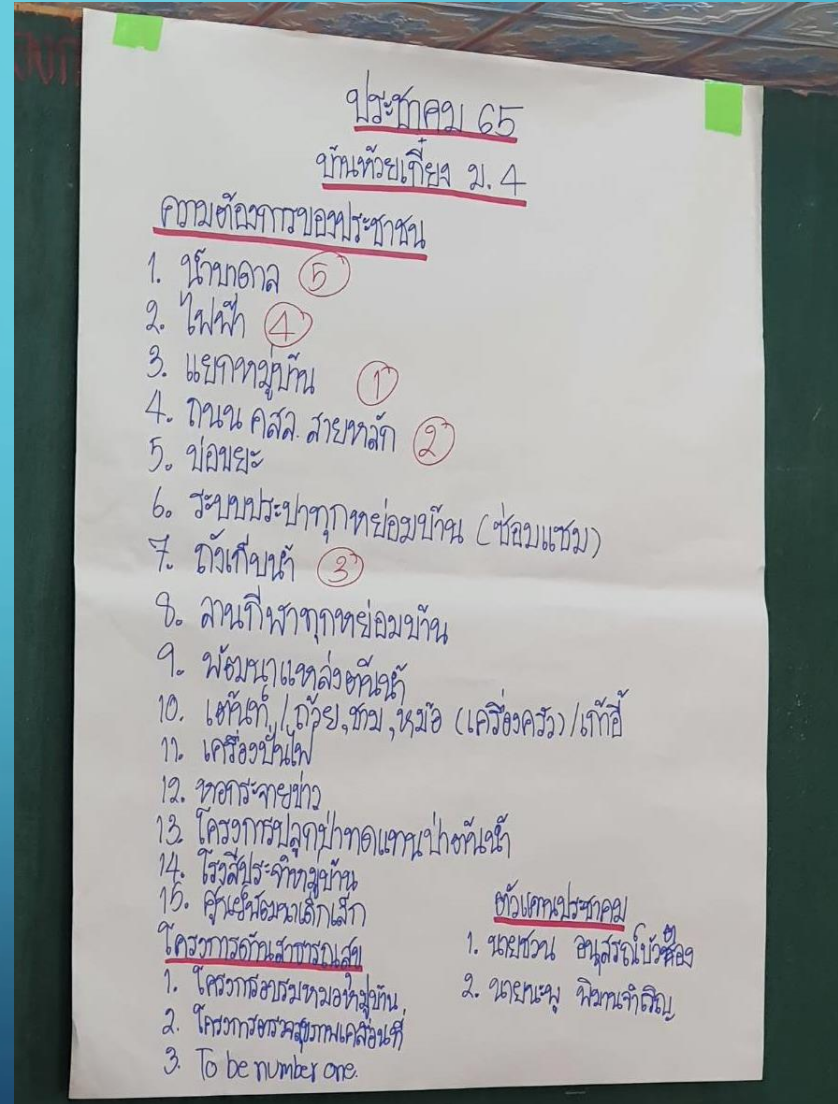 ประชาคม 65
บ้านห้วยเกี๋ยง ม. 4
ความต้องการของประชาชน
1. น้ำบาดาล ⑤
2. ไฟฟ้า ④
3. แยกหมู่บ้าน ①
4. ถนน คสล. สายหลัก ②
5. บ่อขยะ
6. ระบบประปาทุกหย่อมบ้าน (ซ่อมแซม)
7. ถังเก็บน้ำ ③
8. ลานกีฬาทุกหย่อมบ้าน
9. พัฒนาแหล่งต้นน้ำ
10. เต้นท์ / ถ้วย, ชาม, หม้อ (เครื่องครัว) / เก้าอี้
11. เครื่องปั่นไฟ
12. หอกระจายข่าว
13. โครงการปลูกป่าทดแทนป่าต้นน้ำ
14. โรงสีประจำหมู่บ้าน
15. ศูนย์พัฒนาเด็กเล็ก
โครงการด้านสาธารณสุข
1. โครงการอบรมหมอหมู่บ้าน
2. โครงการตรวจสุขภาพเคลื่อนที่
3. To be number one.
ตัวแทนประชาคม
1. นายชวน อนุสรณ์
2. นายนะพุ พิมาน